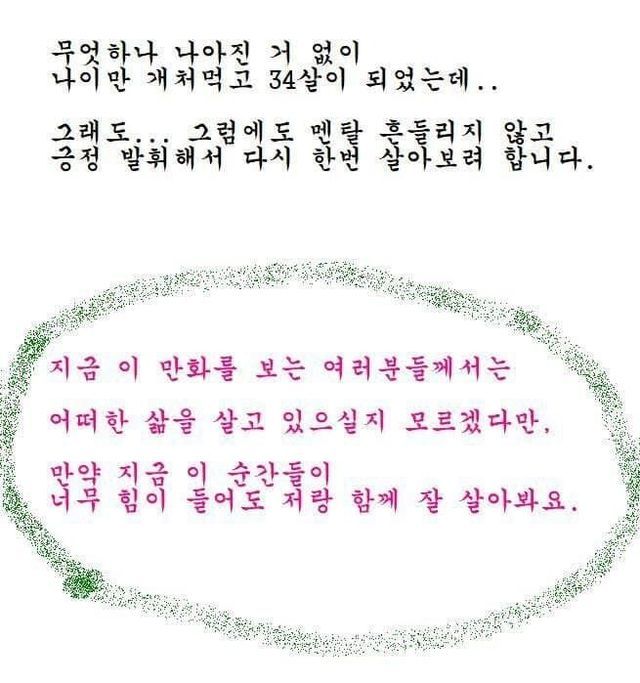 무엇하나 나아진 거 없이
나이만 개처먹고 34살이 되었는데..
그래도... 그럼에도 멘탈 흔들리지 않고
긍정 발휘해서 다시 한번 살아보려 합니다.
지금 이 만화를 보는 여러분들께서는
어떠한 삶을 살고 있으실지 모르겠다만,
만약 지금 이 순간들이
너무 힘이 들어도 저랑 함께 잘 살아봐요.